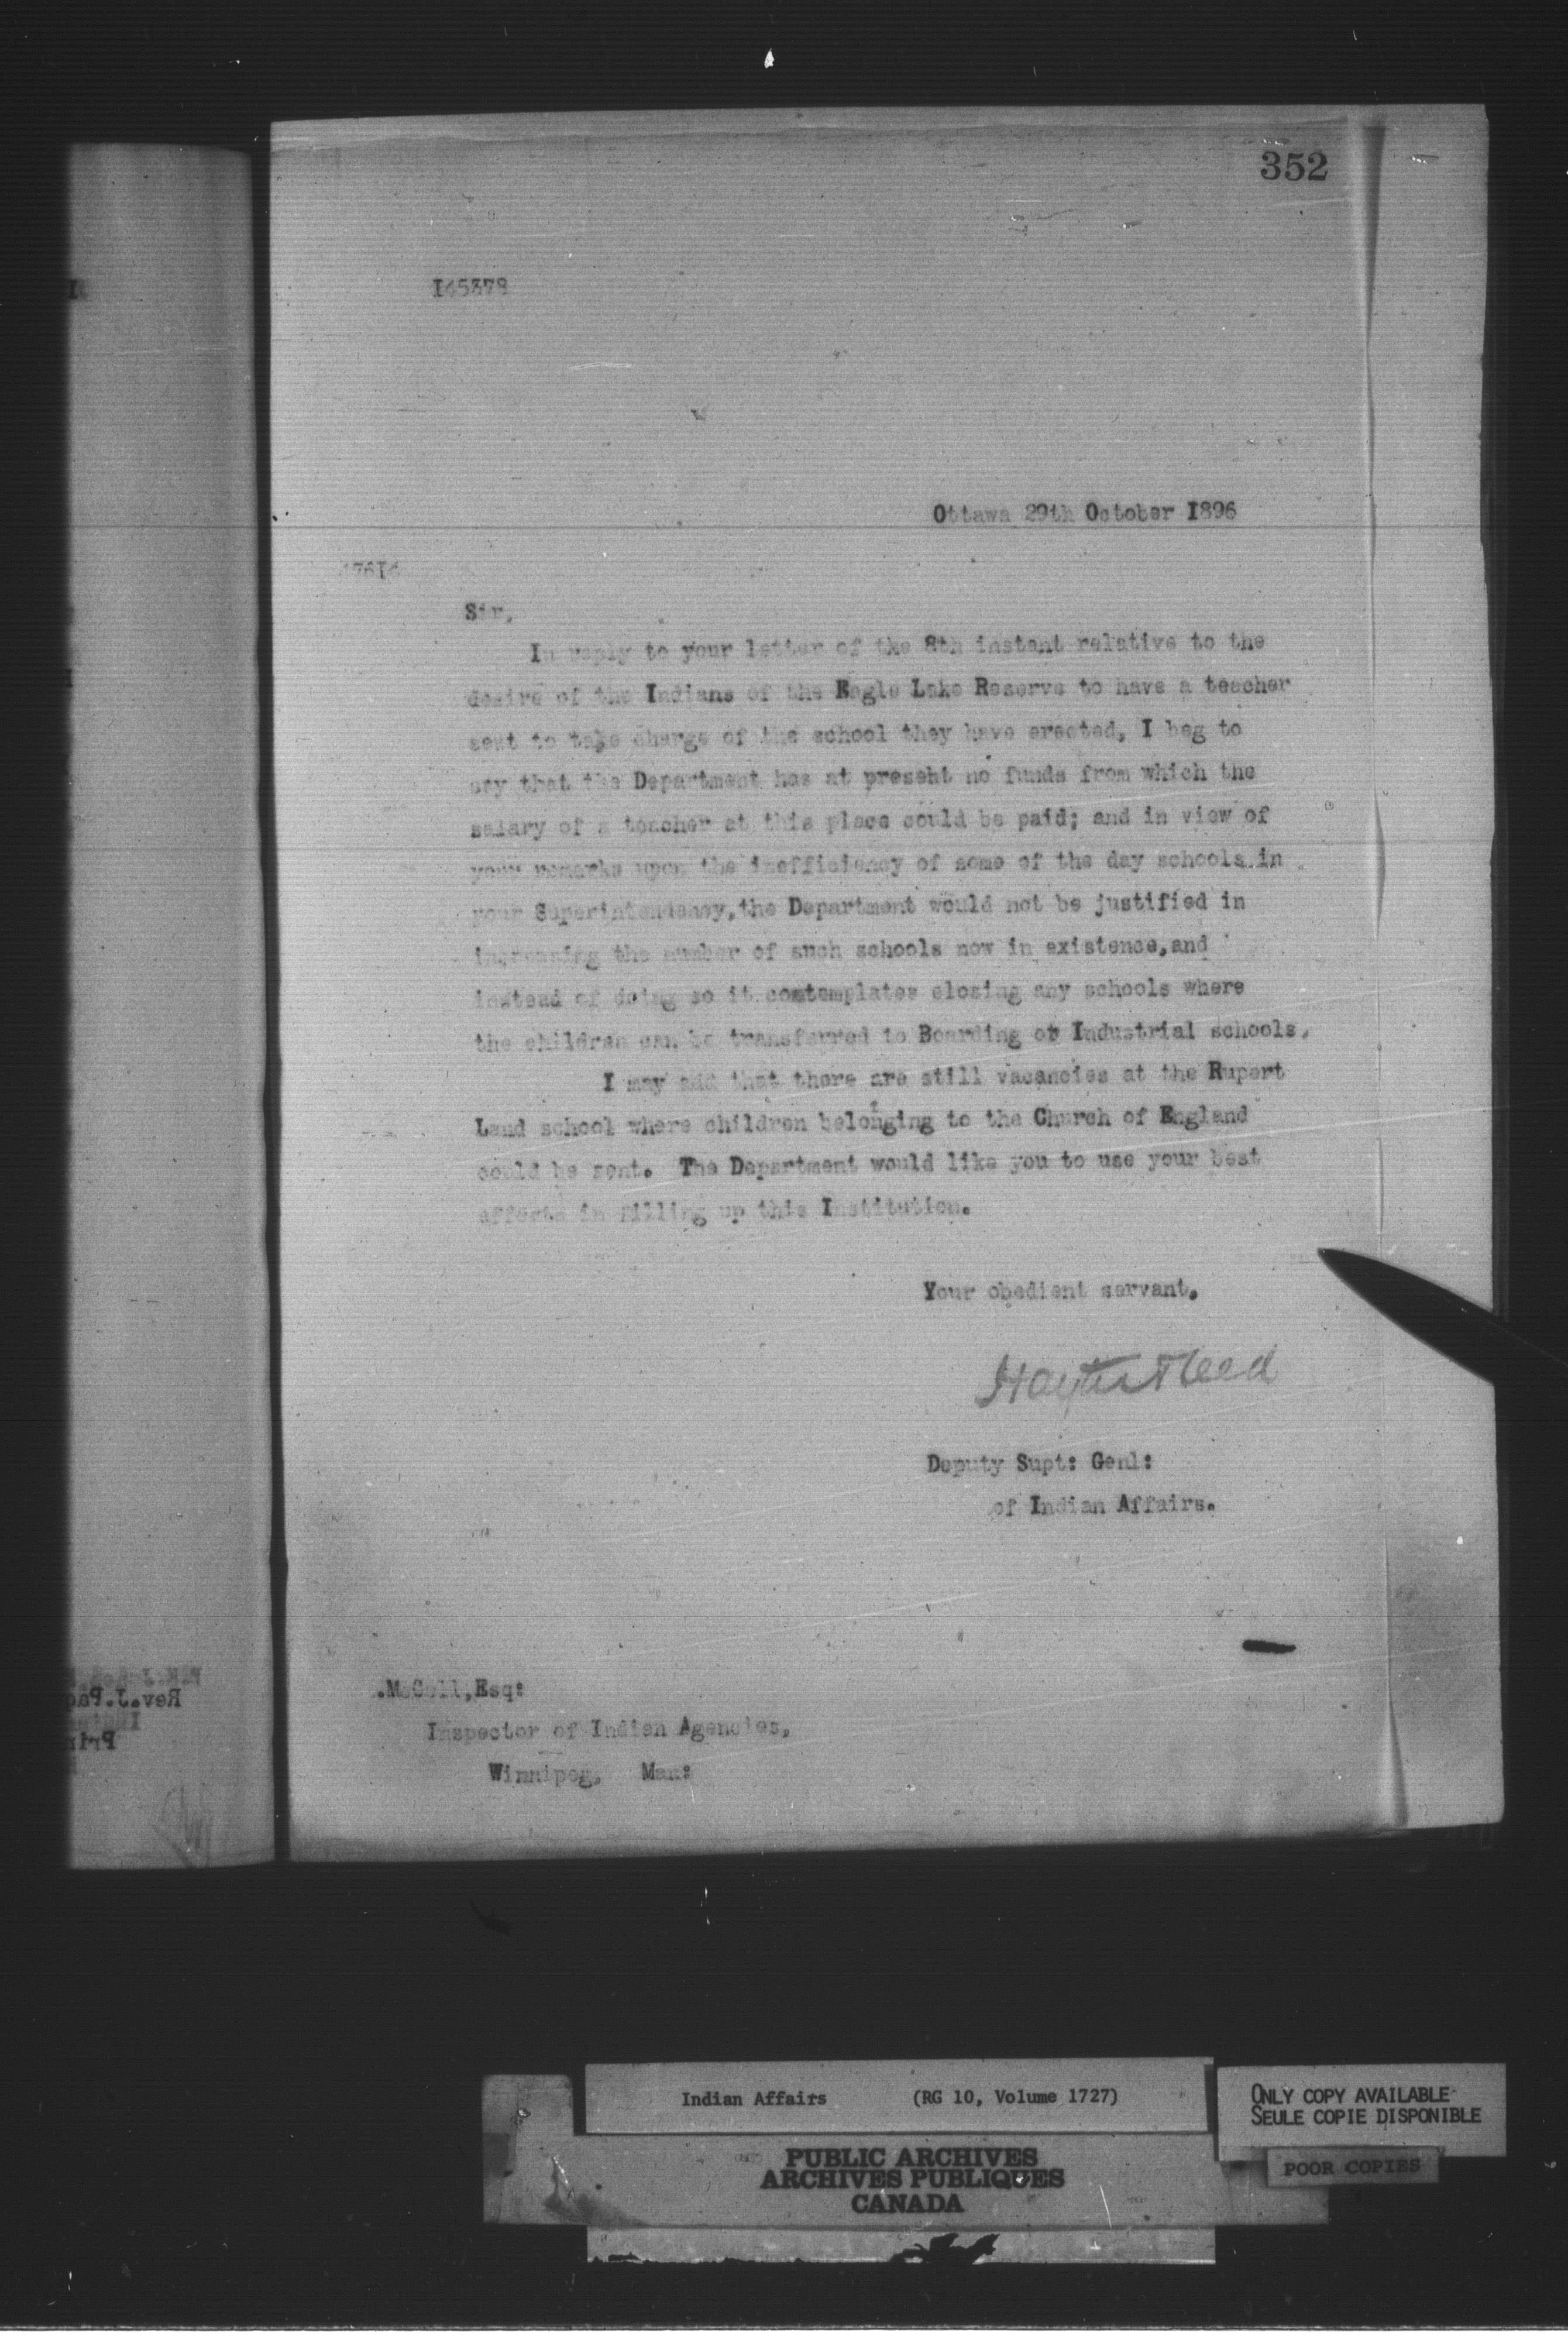 352
I45378
Ottawa 29th October I896
Sir,
In reply to your letter of the 8th instant relative to the
desire of the Indians of the Eagle Lake Reserve to have a teacher
sent to take charge of the school they have erected, I beg to
say that the Department has at present no funds from which the
salary of a teacher at this place could be paid; and in view of
your remarks upon the inefficiency of some of the day schools in
your Superintendency,the Department would not be justified in
increasing the number of such schools now in existence,and
instead of doing so it contemplates closing any schools where
the children can be transferred to Boarding or Industrial schools.
I may add that there are still vacancies at the Rupert
Land school where children belonging to the Church of England
could be sent. The Department would like you to use your best
efforts in filling up this Institution.
Your obedient servant.
Hayter Reed
Deputy Supt: Genl:
of Indian Affairs.
.McColl,Esq:
Inspector of Indian Agencies,
Winnipeg, Man:
Rev.J.
Indian Affairs (RG 10, Volume 1727)
PUBLIC ARCHIVES
ARCHIVES PUBLIQUES
CANADA
ONLY COPY AVAILABLE
SEULE COPIE DISPONIBLE
POOR COPIES